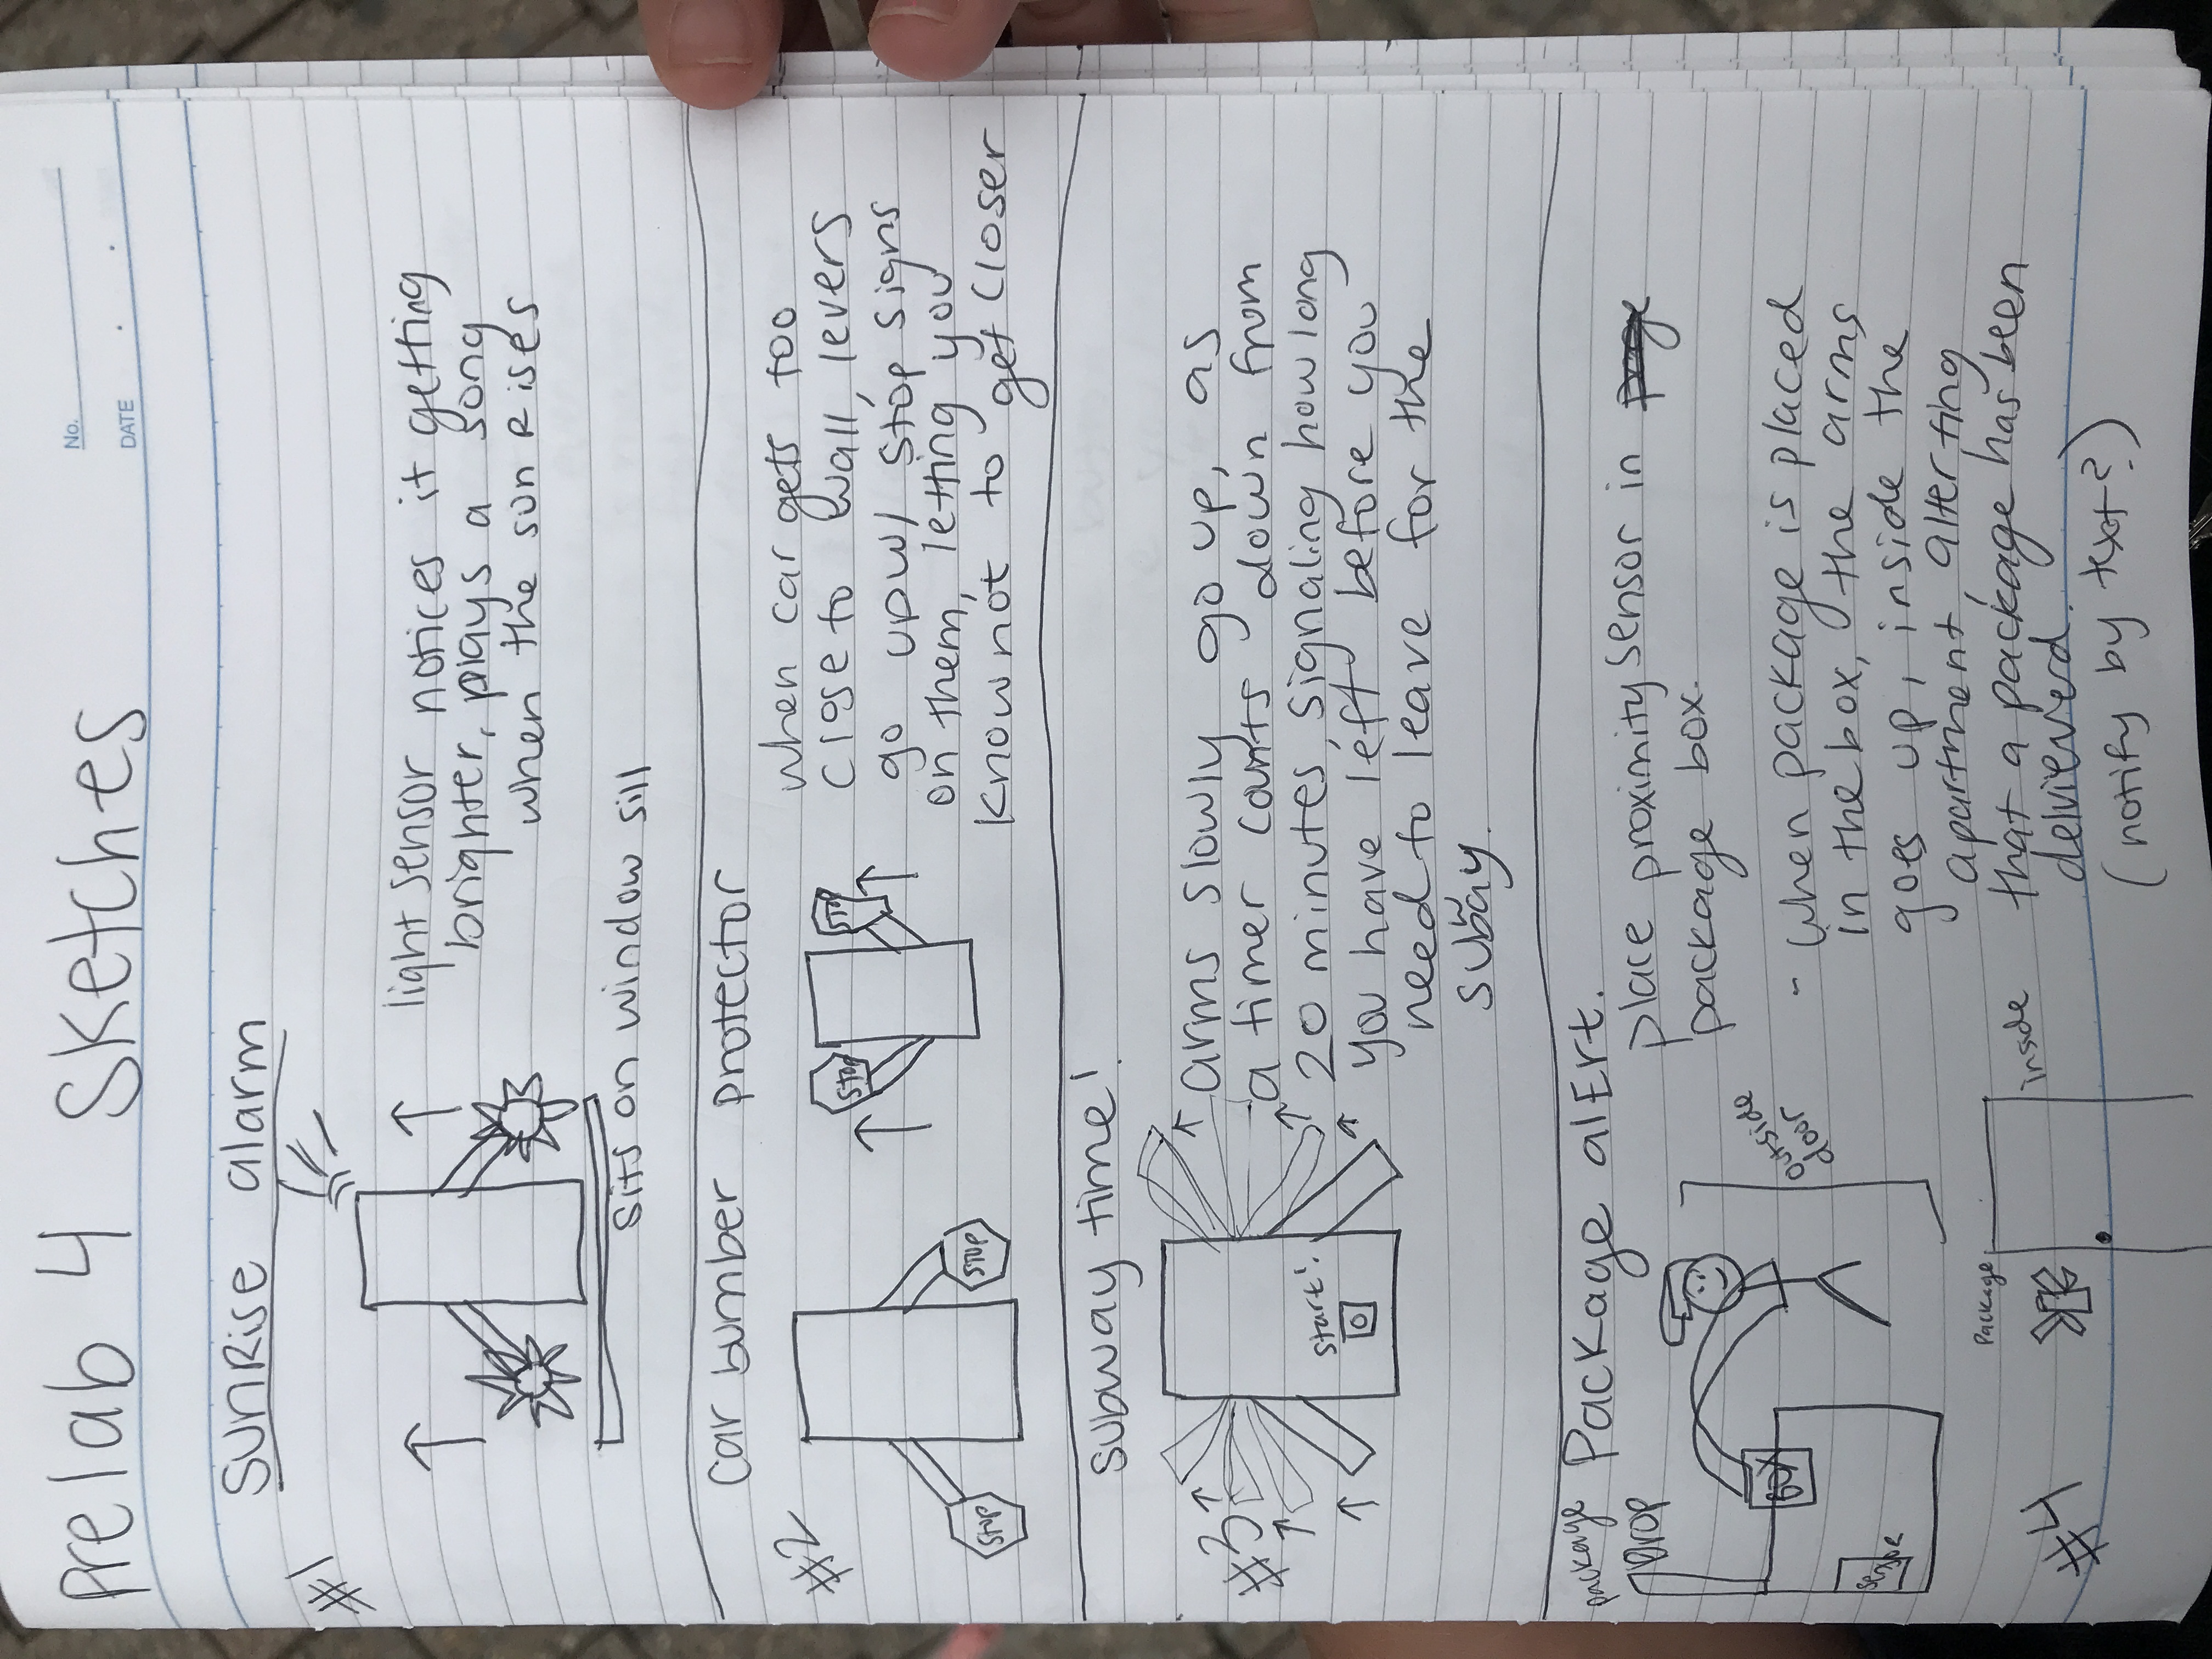 Prelab 4 Sketches
No.
DATE
Sunrise alarm
#1
light sensor notices it getting
brighter, plays a song
when the sun rises
sits on window sill
car bumber protector
#2
stop
stop
stop
stop
when car gets too
close to wall, levers
go up w/ stop signs
on them, letting you
know not to get closer
subway time!
#3
start!
arms slowly go up, as
a timer counts down from
20 minutes, signaling how long
you have left before you
need to leave for the
subway.
Package alert.
package
Drop
BOX
sensor
outside
door
place proximity sensor in
package box.
- when package is placed
in the box, the arms
goes up, inside the
apartment, alterting
that a package has been
delvieverd.
(notify by text?)
Package
inside
#4